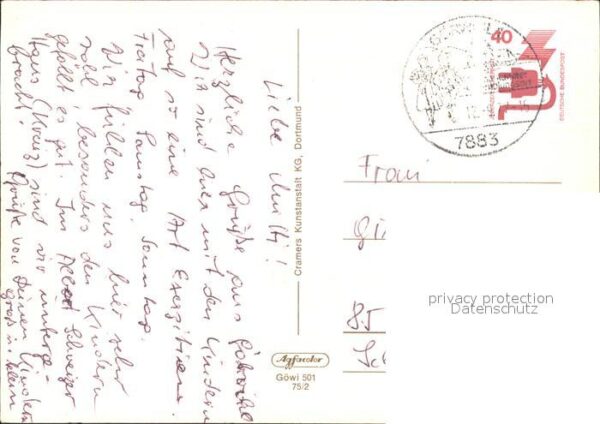 Liebe Mutti!
Herzliche Grüße aus
Wir sind hier mit den Kindern
auf so eine Art Exerzitien.
Freitag, Samstag, Sonntag.
Wir fühlen uns hier sehr
wohl, besonders den Kindern
gefällt es gut. Im Albert Schweizer
Haus (Kreuz) sind wir unterge-
bracht!
Grüße von Deinen Kindern
groß u. klein
Cramers Kunstanstalt KG, Dortmund
Agfacolor
Göwi 501
75/2
40
DEUTSCHE BUNDESPOST
7883
Frau
privacy protection
Datenschutz